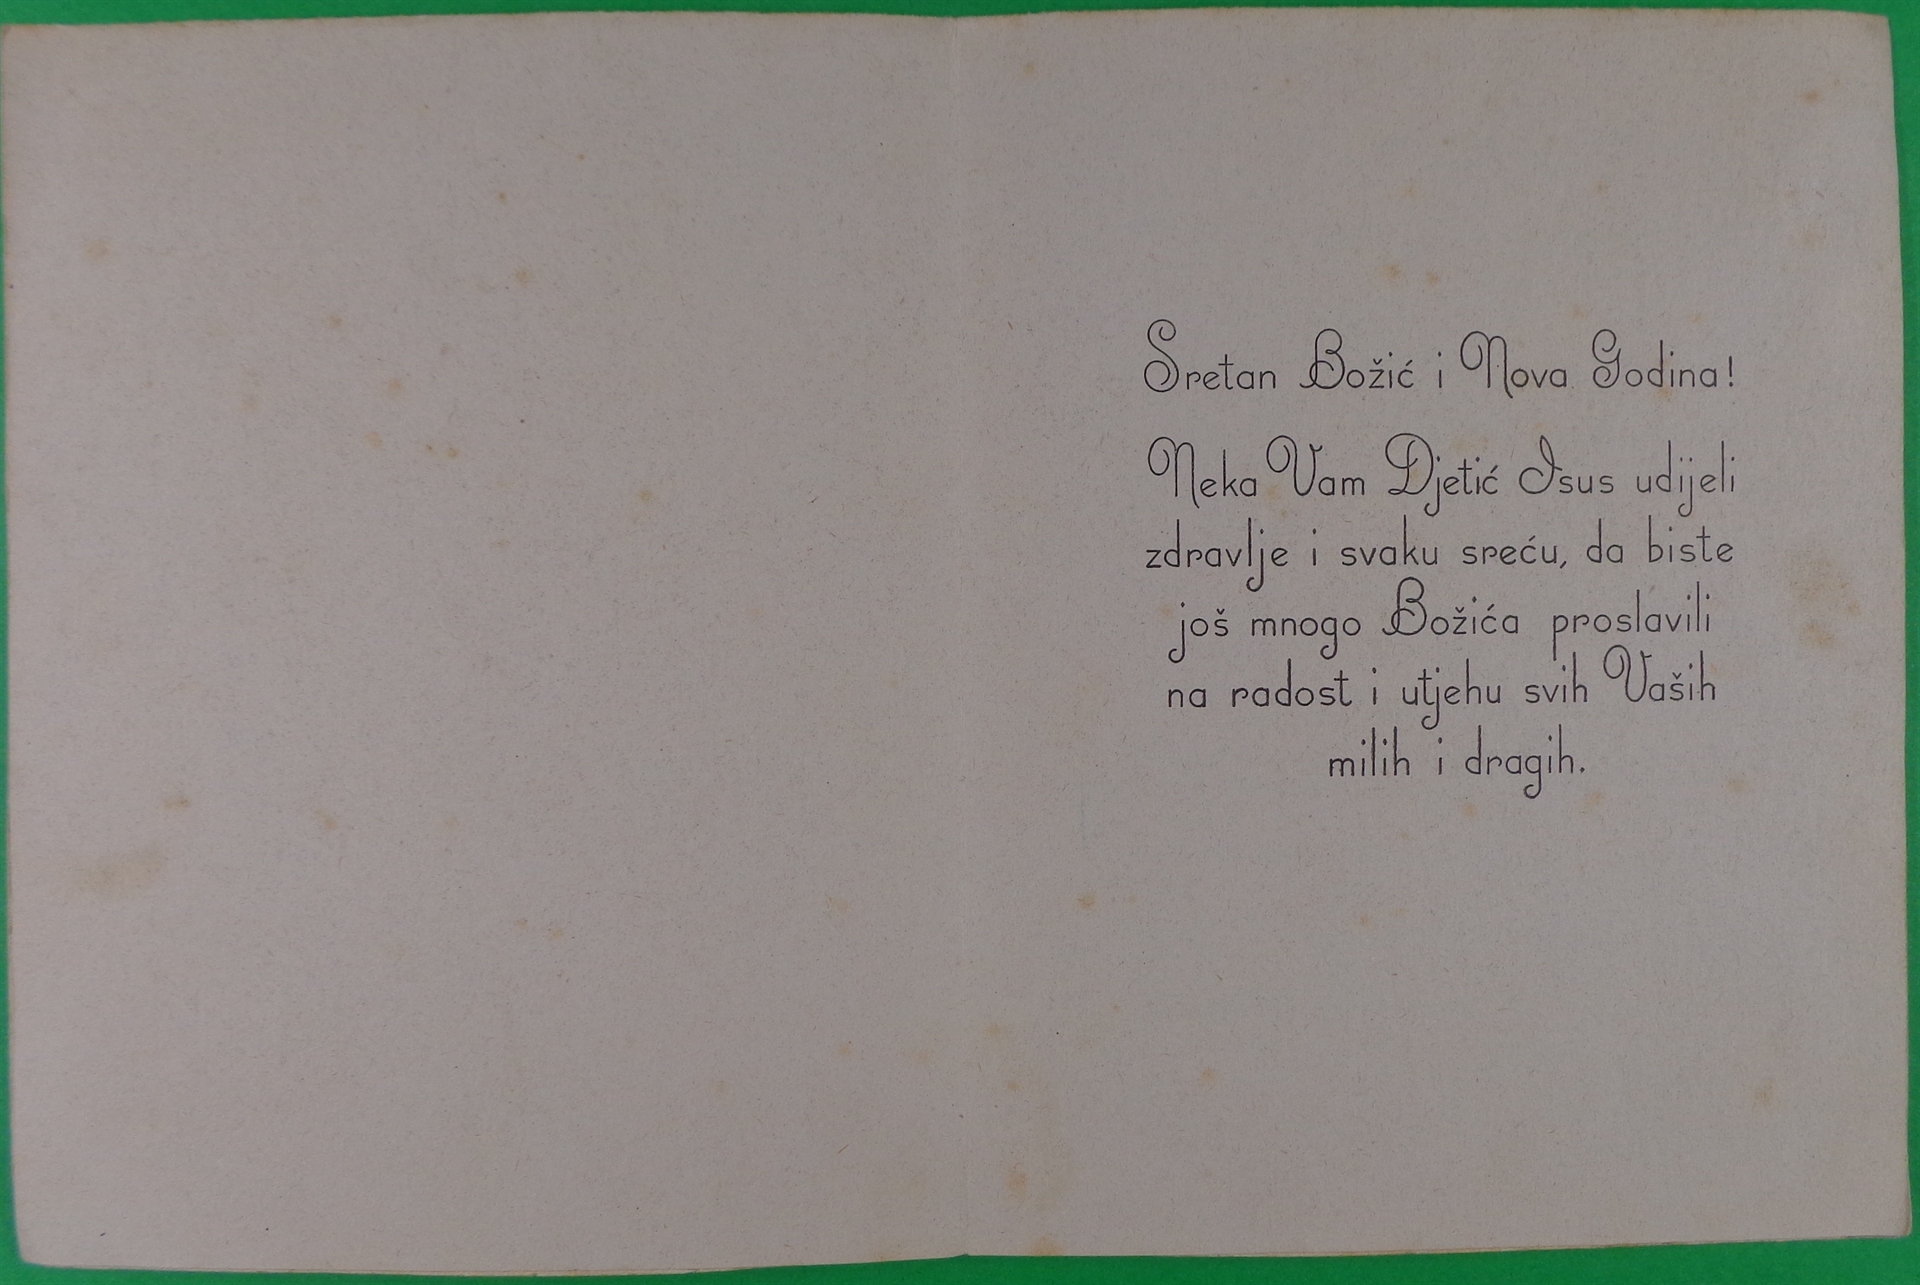 Sretan Božić i Nova Godina!
Neka Vam Djetić Isus udijeli
zdravlje i svaku sreću, da biste
još mnogo Božića proslavili
na radost i utjehu svih Vaših
milih i dragih.